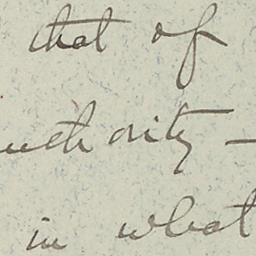 that of
uthority —
in what